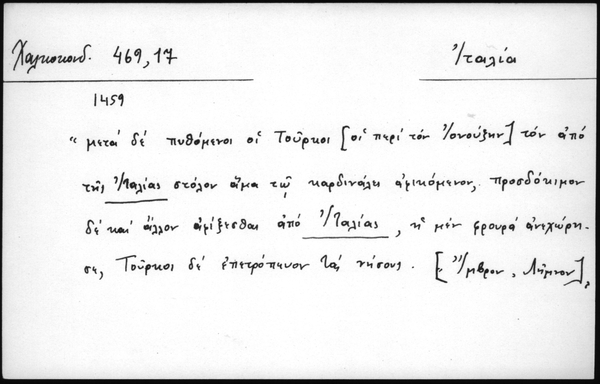 Χαλκοκονδ. 469,17 Ἰταλία
1459
" μετὰ δὲ πυθόμενοι οἱ Τοῦρκοι [οἱ περὶ τὸν Ἰονούξην] τὸν ἀπὸ
τῆς Ἰταλίας στόλον ἅμα τῷ καρδινάλει ἀφικόμενον, προσδόκιμον
δὲ καὶ ἄλλον ἀφίξεσθαι ἀπὸ Ἰταλίας, ἡ μὲν φρουρὰ ἀνεχώρη-
σε, Τοῦρκοι δὲ ἐπετρόπευον τὰς νήσους. [Ἴμβρον, Λῆμνον],